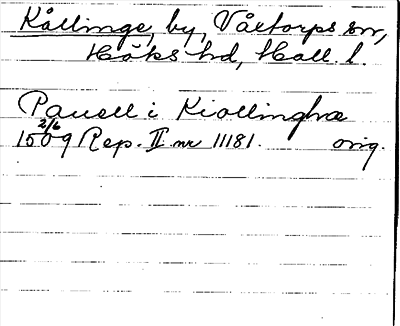 Kållinge, by, Våxtorps sn,
Höks hd, Hall. l.
Pauell i Kiollinghæ
1509 2/6 Rep. II nr 11181. orig.